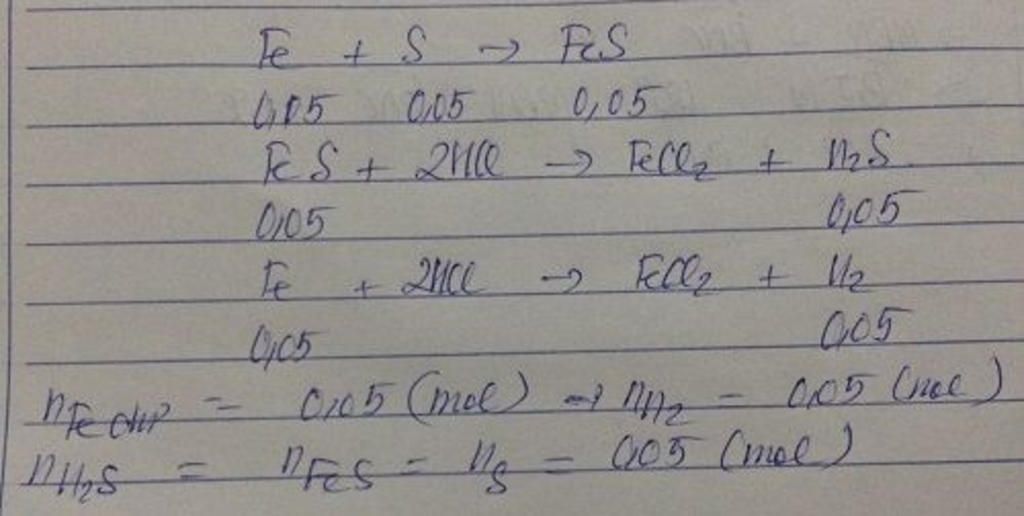 Fe + S → FeS
0,05 0,05 0,05
FeS + 2HCl → FeCl₂ + H₂S
0,05 0,05
Fe + 2HCl → FeCl₂ + H₂
0,05 0,05
nFe dư = 0,05 (mol) → nH₂ = 0,05 (mol)
nH₂S = nFeS = nS = 0,05 (mol)